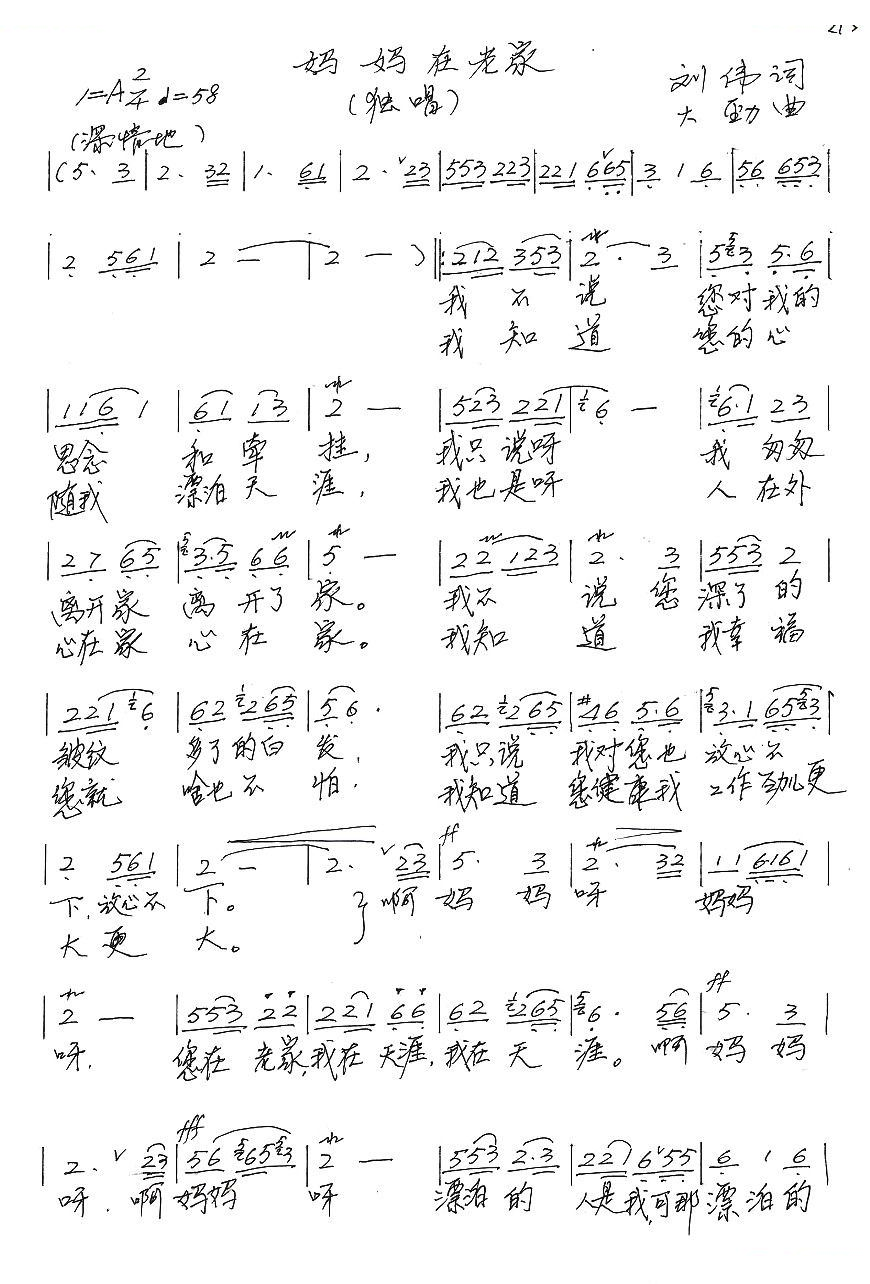 妈妈在老家
1=A 2/4 ♩=58
(独唱)
刘伟词
大勁曲
(深情地)
|(5. 3|2. 32|1. 61|2. ˅23|553 223|221 6˅65|3 1 6|56 653|
|2 561|2 —|2 —)‖:212 353|2. 3|553 5.6|
我 不 说 您对我的
我 知 道 您的心
|116 1|61 13|2 —|523 221|6 —|6.1 23|
思念 和牵 挂, 我只说呀 我 匆匆
随我 漂泊天 涯, 我也是呀 人在外
|27 65|3.5 66|5 —|22 123|2. 3|553 2|
离开家 离开了 家。 我不 说 您 深了的
心在家 心在 家。 我知 道 我幸福
|221 6|62 265|5 6.|62 265|#46 5.6|3.1 653|
皱纹 多了的白 发, 我只说 我对您也 放心不
您就 啥也不 怕, 我知道 您健康我 工作劲儿更
|2 561|2 —|2. ˅23|5. 3|2. 32|11 6161|
ff
下,放心不 下。 啊 妈 妈 呀 妈妈
大更 大。
|2 —|553 22|221 66|62 265|6. 56|5. 3|
ff
呀, 您在 老家,我在 天涯,我在 天 涯。 啊 妈 妈
fff
|2. ˅23|56 6553|2 —|553 2.3|221 6˅55|6 1 6|
呀, 啊 妈妈 呀 漂泊的 人是我,可那 漂泊的